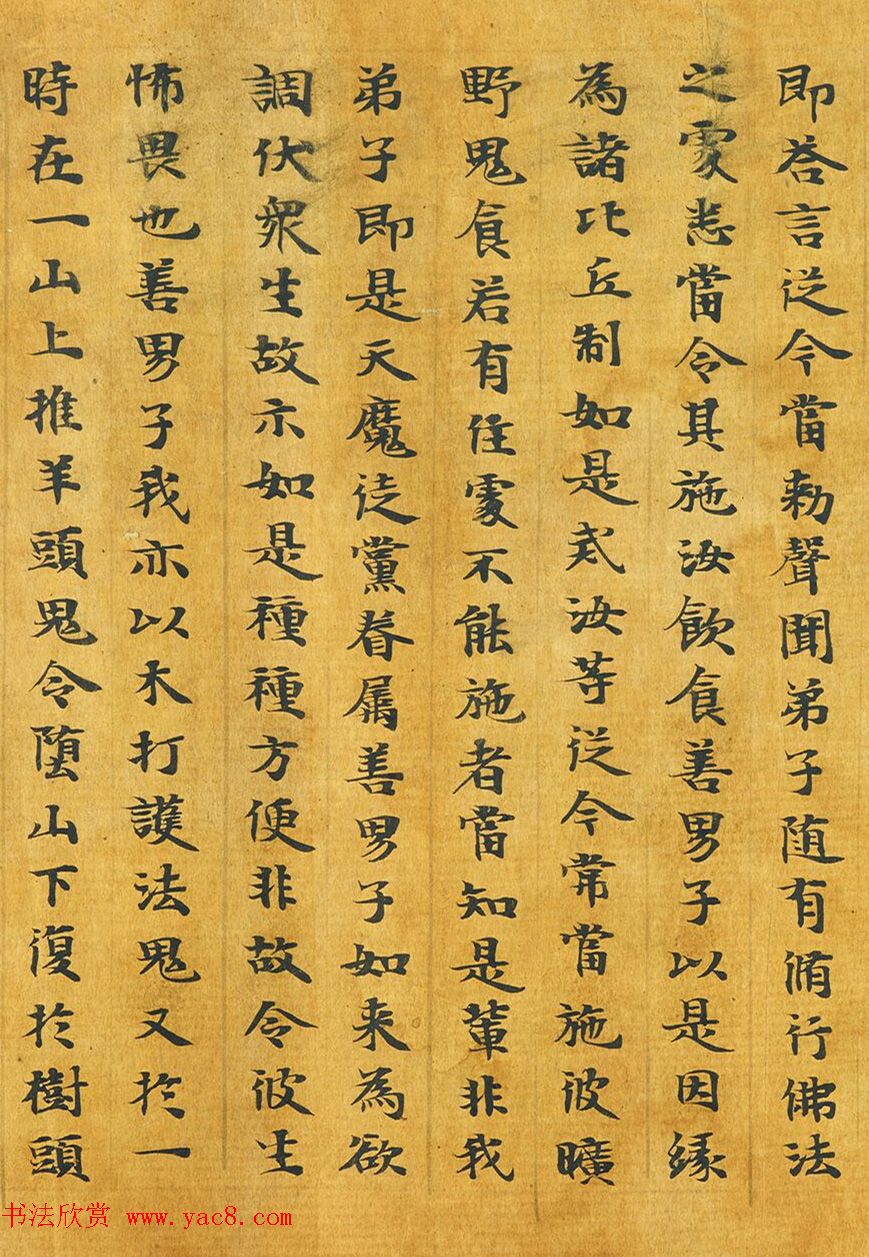 即荅言従今當勑聲聞弟子随有脩行佛法
之處悉當令其施汝飲食善男子以是因縁
為諸比丘制如是戒汝等従今常當施彼曠
野鬼食若有住處不能施者當知是輩非我
弟子即是天魔徒黨眷属善男子如来為欲
調伏衆生故示如是種種方便非故令彼生
怖畏也善男子我亦以木打護法鬼又於一
時在一山上推羊頭鬼令堕山下復於樹頭
书法欣赏 www.yac8.com